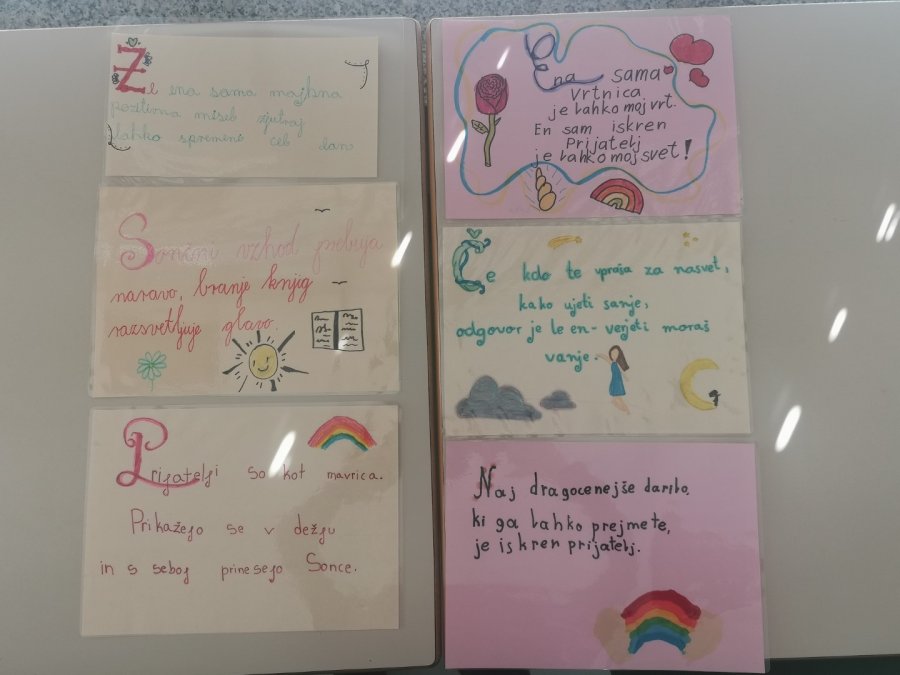 Že ena sama majhna
pozitivna misel zjutraj
lahko spremeni cel dan
Sončni vzhod prebuja
naravo, branje knjig
razsvetljuje glavo.
Prijatelji so kot mavrica.
Prikažejo se v dežju
in s seboj prinesejo Sonce.
Ena sama
vrtnica
je lahko moj vrt.
En sam iskren
Prijatelj
je lahko moj svet!
Če kdo te vpraša za nasvet,
kako ujeti sanje,
odgovor je le en- verjeti moraš
vanje.
Naj dragocenejše darilo,
ki ga lahko prejmete,
je iskren prijatelj.